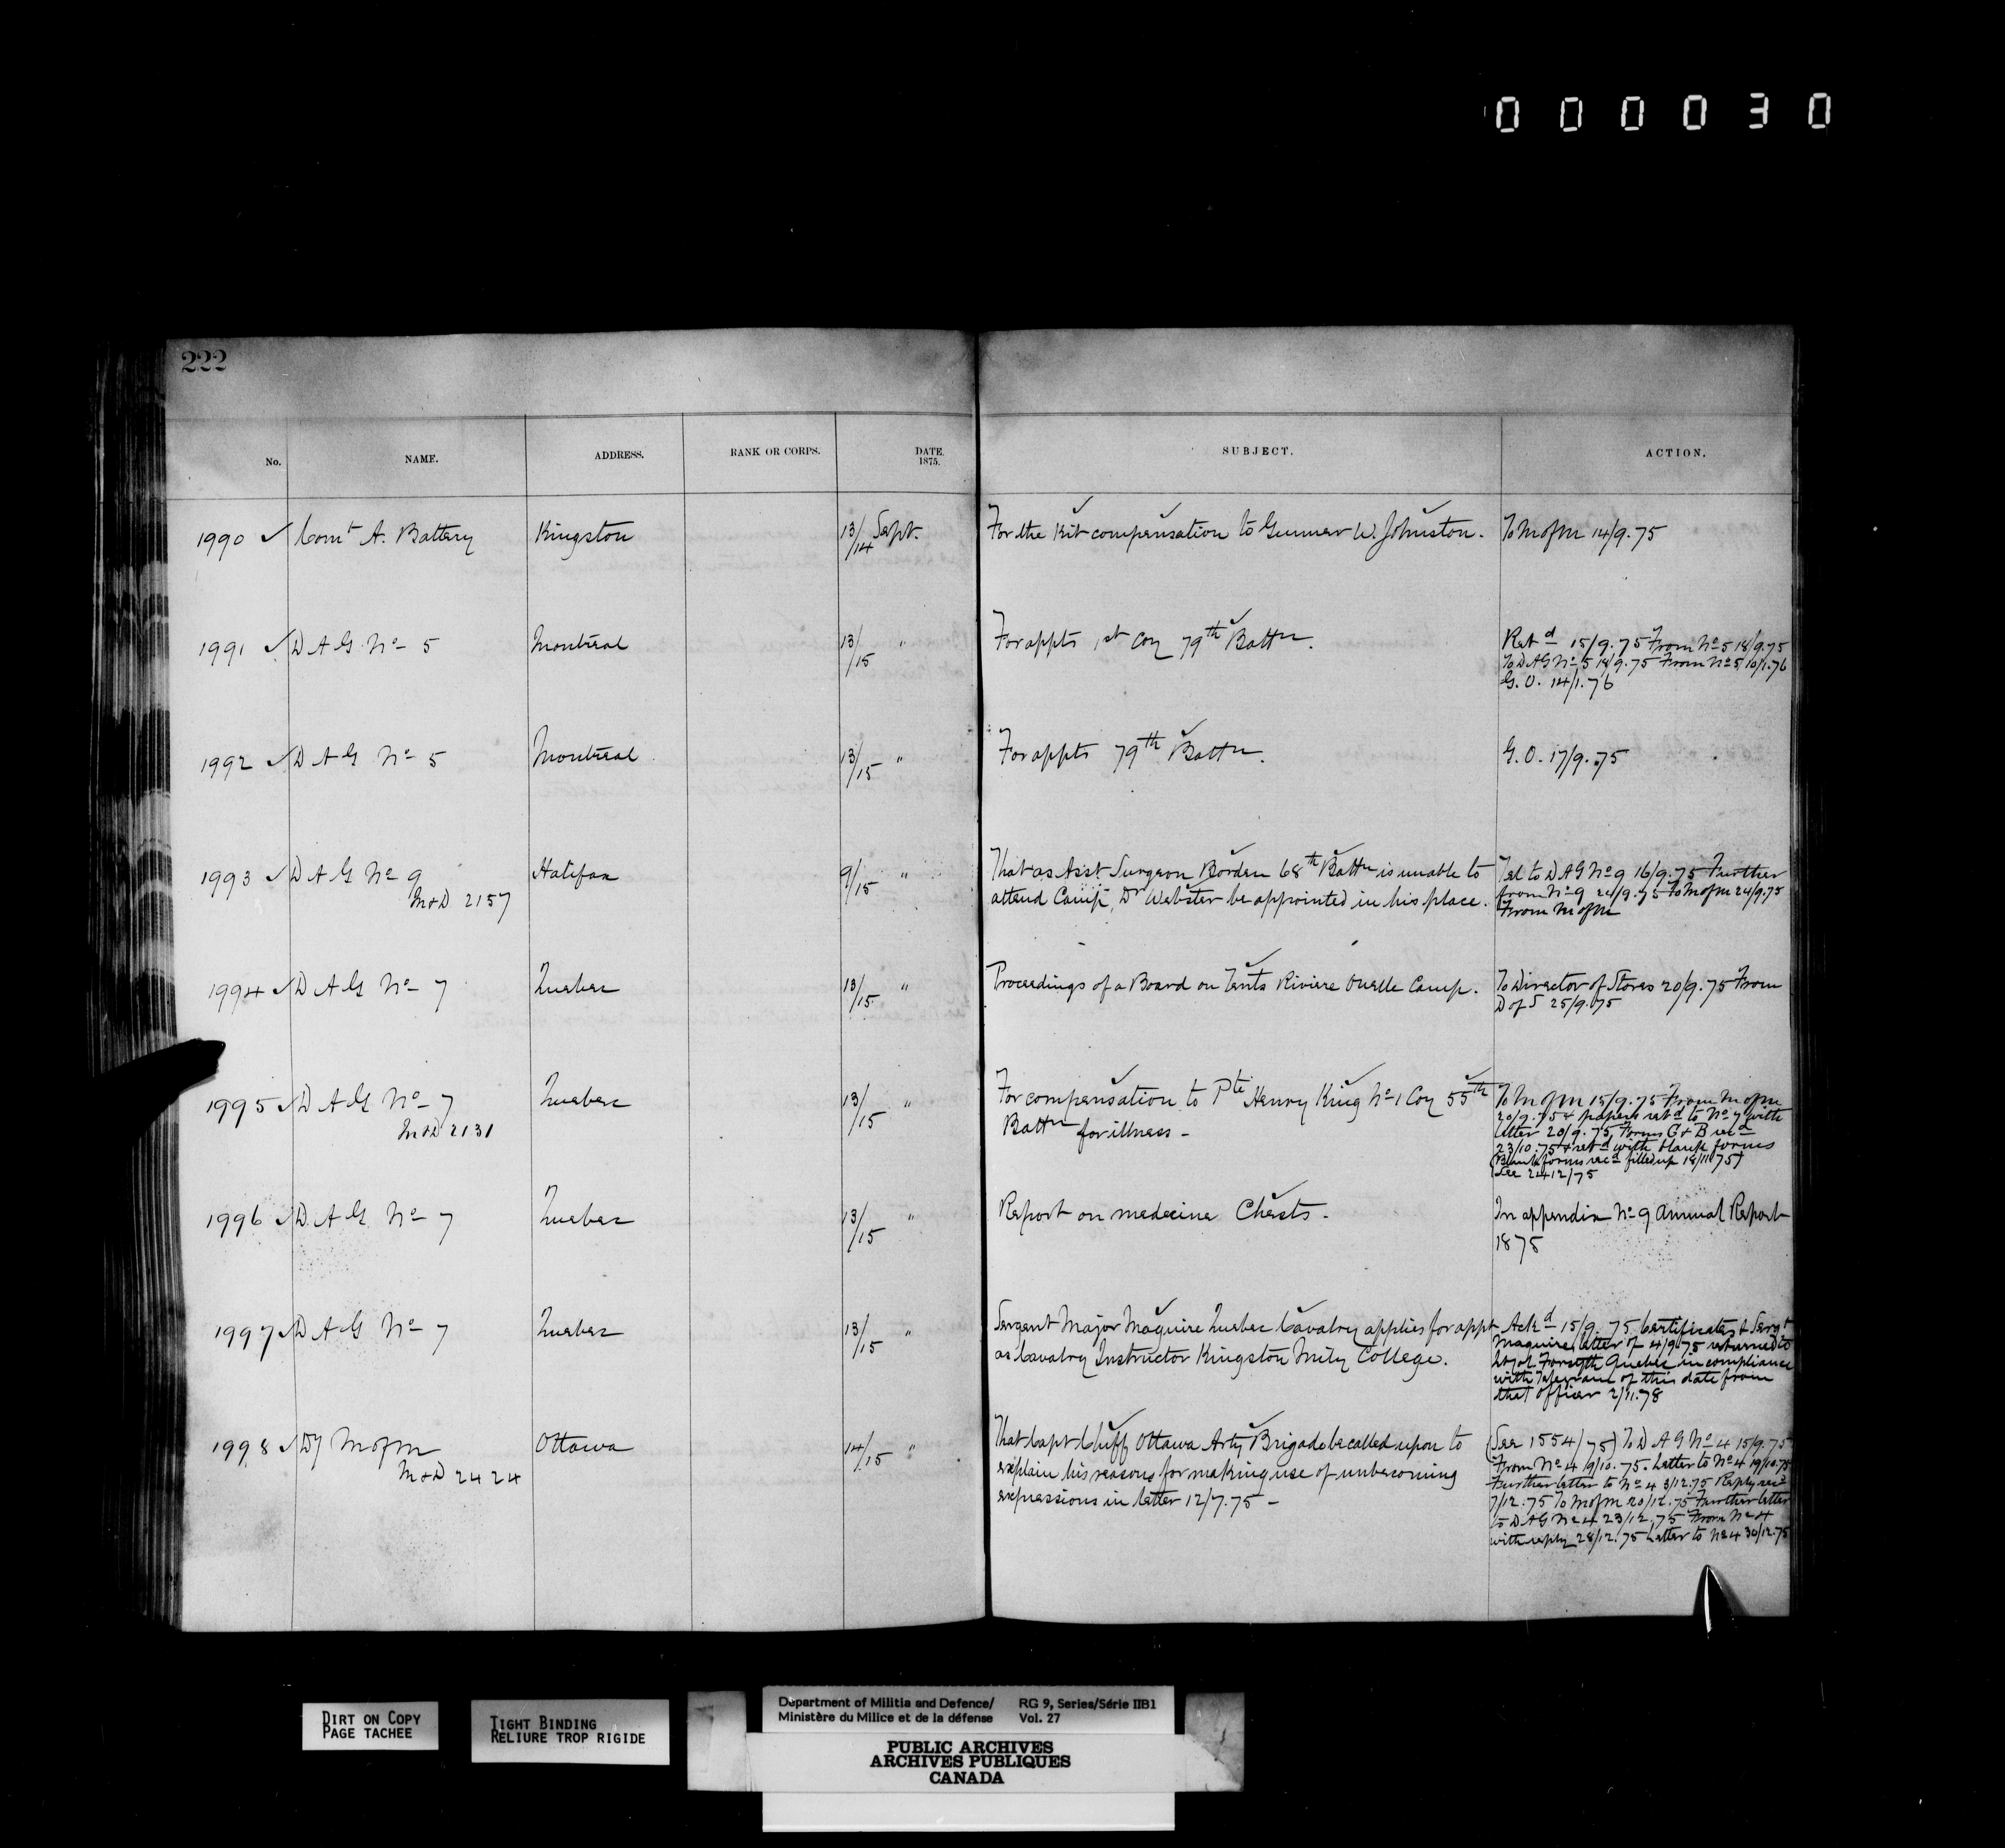 000030
222
No. NAME. ADDRESS. RANK OR CORPS. DATE. 1875. SUBJECT. ACTION.
1990 ✓ Comt A. Battery Kingston 13/14 Sept. For the Kit compensation to Gunner W. Johnston. To M of M 14/9.75
1991 ✓ D A G No 5 Montreal 13/15 " For appts 1st Coy 79th Battn. Retd 15/9.75 From No 5 18/9.75
To D A G No 5 18/9.75 From No 5 10/1.76
G. O. 14/1.76
1992 ✓ D A G No 5 Montreal 13/15 " For appts 79th Battn. G. O. 17/9.75
1993 ✓ D A G No 9 Halifax 9/15 " That as Asst Surgeon Borden 68th Battn is unable to Tel to D A G No 9 16/9.75 Further
M & D 2157 attend Camp, Dr Webster be appointed in his place. from No 9 24/9.75 To M of M 24/9.75
From M of M
1994 ✓ D A G No 7 Quebec 13/15 " Proceedings of a Board on Tents Riviere Ouelle Camp. To Director of Stores 20/9.75 From
D of S 25/9.75
1995 ✓ D A G No 7 Quebec 13/15 " For compensation to Pte Henry King No 1 Coy 55th To M of M 15/9.75 From M of M
M & D 2131 Battn for illness - 20/9.75 & papers retd to No 7 with
letter 20/9.75 Forms C & B recd
23/10.75 & retd with blank forms
(Blank forms recd filled up 18/11.75)
See 2412/75
1996 ✓ D A G No 7 Quebec 13/15 " Report on medecine Chests. In appendix No 9 Annual Report
1875
1997 ✓ D A G No 7 Quebec 13/15 " Sergent Major Maguire Quebec Cavalry applies for appt Ackd 15/9.75 Certificates & Sergt
as Cavalry Instructor Kingston Mily College. Maguire letter of 4/9.75 returned to
Forsyth Quebec in compliance
with Telegram of this date from
that officer 2/11.78
1998 ✓ Dy M of M Ottawa 14/15 " That Capt Cluff Ottawa Arty Brigade be called upon to (See 1554/75) To D A G No 4 15/9.75
M & D 2424 explain his reasons for making use of unbecoming From No 4 9/10.75. Letter to No 4 19/10.75
expressions in letter 12/7.75 - Further letter to No 4 3/12.75 Reply recd
7/12.75 To M of M 20/12.75 Further letter
to D A G No 4 23/12.75 From No 4
with reply 28/12.75 Letter to No 4 30/12.75
DIRT ON COPY
PAGE TACHEE
TIGHT BINDING
RELIURE TROP RIGIDE
Department of Militia and Defence/ RG 9, Series/Série IIB1
Ministère du Milice et de la défense Vol. 27
PUBLIC ARCHIVES
ARCHIVES PUBLIQUES
CANADA